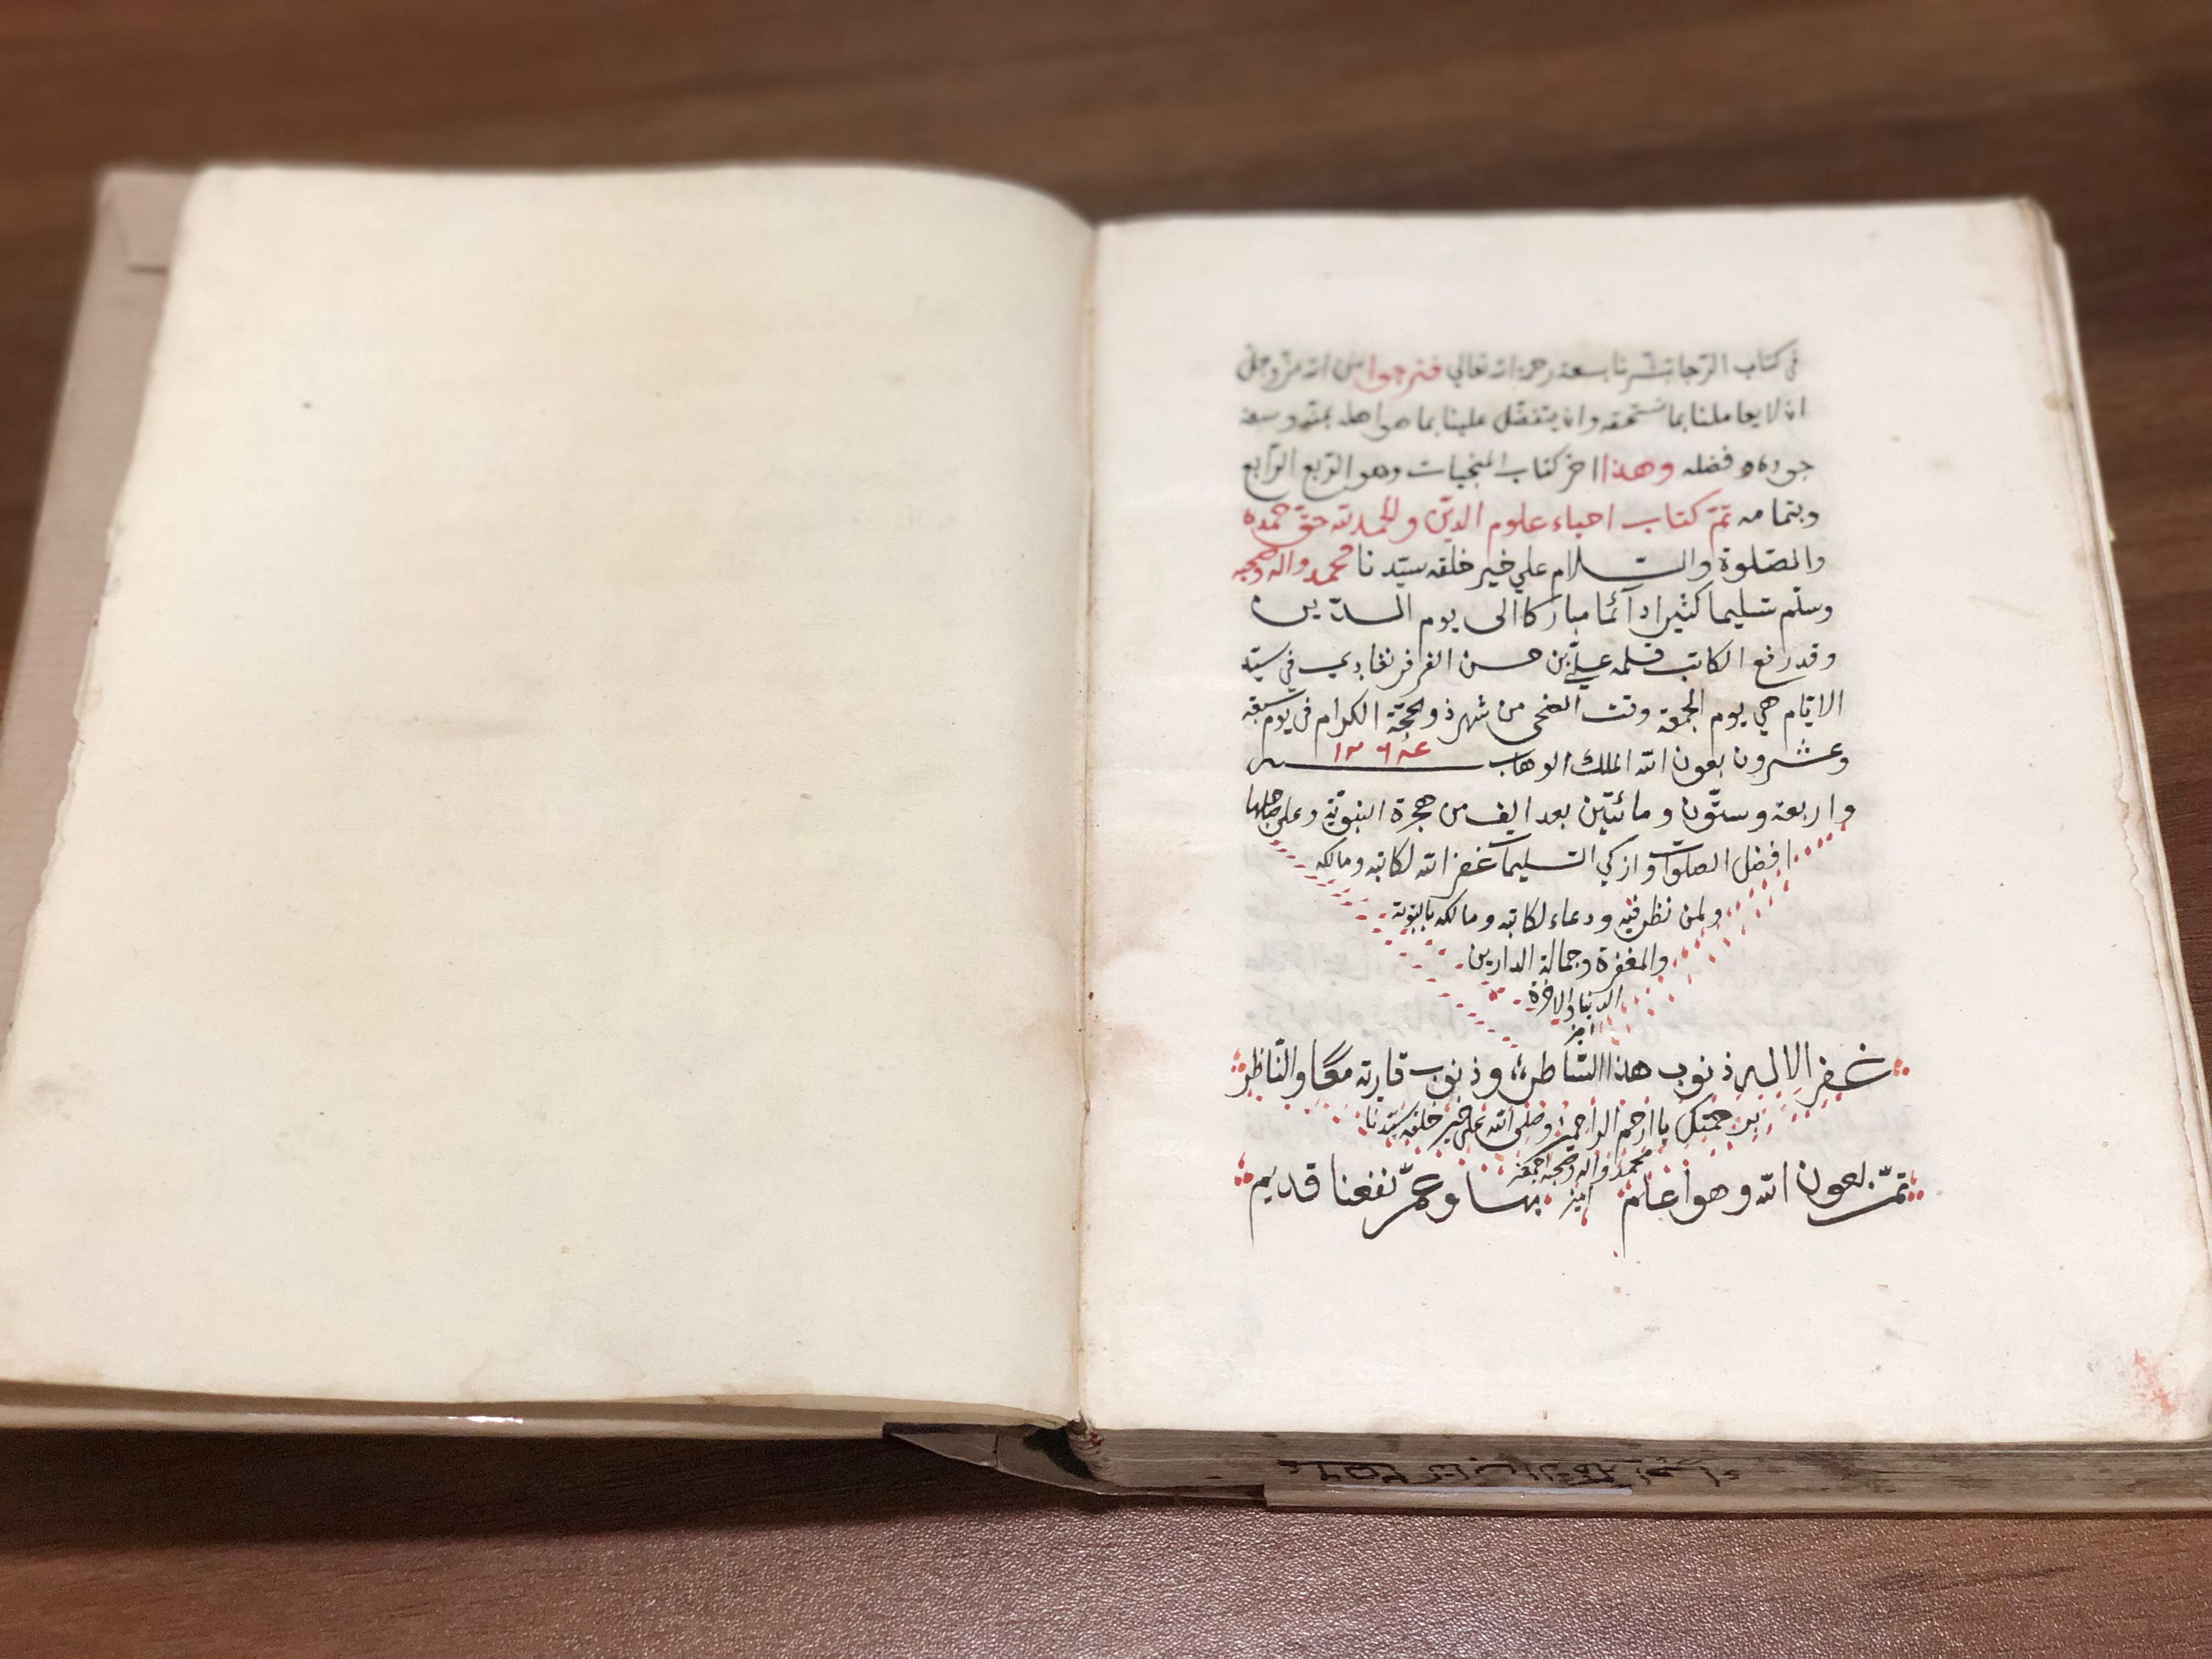 في كتاب الرجا تبشرنا بسعة رحمة الله تعالي فنرجوا من الله عز وجل
ان لا يعاملنا بما نستحقه وان يتفضل علينا بما هو اهله بمنه وسعة
جوده وفضله وهذا اخر كتاب المنجيات وهو الربع الرابع
وبتمامه تمّ كتاب احياء علوم الدين والحمد لله حق حمده
والصلوة والسلام علي خير خلقه سيّدنا محمد واله وصحبه
وسلّم تسليما كثيرا دآئما مباركا الى يوم الدّين
وقد رفع الكاتب قلمه عليّ بن حسن في سيّد
الايّام هي يوم الجمعة وقت الضحى من شهر ذو الحجّة الكرام في يوم سبعة
وعشرون بعون الله الملك الوهاب سنه ١٢٦٤
واربعة وستّون ومائتين بعد الف من هجرة النبوّية وعلى صاحبها
افضل الصلوات وازكي التسليمات غفر الله لكاتبه ومالكه
ولمن نظر فيه ودعاء لكاتبه ومالكه بالتوبة
والمغفرة وجمالة الدارين
الدنيا والاخرة
امين
غفر الاله ذنوب هذا السّاطر وذنوب قارئه معًا والنّاظر
برحمتك يا ارحم الراحمين وصلى الله على خير خلقه سيّدنا
محمد واله وصحبه اجمعين
امين
تمّت بعون الله وهو اعلم بها وعمّ نفعنا قديم